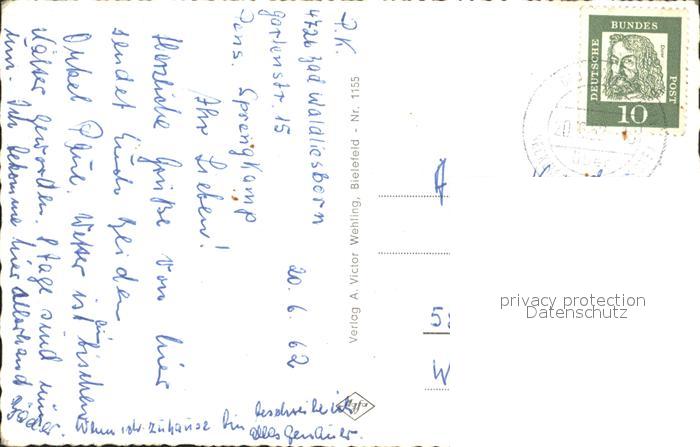 P.K.
4726 Bad Waldliesborn
Gartenstr. 15
Pens. Sprengkamp
20.6.62
Ihr Lieben!
Herzliche Grüße von hier
sendet Euch beiden
Onkel Paul. Wetter ist ein bischen
kälter geworden. 8 Tage sind nun
um. Ich bekomme hier allerhand Bäder.
Wenn ich zuhause bin beschreibe ich
alles genauer.
Verlag A. Victor Wehling, Bielefeld - Nr. 1155
Agfa
DEUTSCHE
BUNDES
POST
Dürer
10
privacy protection
Datenschutz